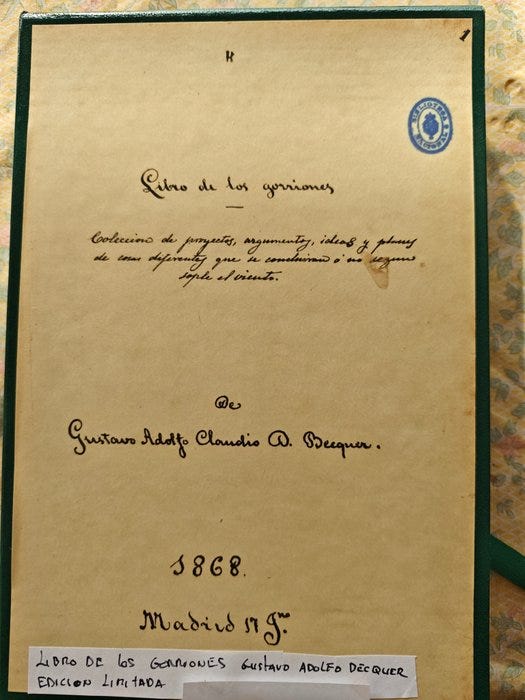 1
H
BIBLIOTECA NACIONAL
Libro de los gorriones
Coleccion de proyectos, argumentos, ideas y planes
de cosas diferentes que se concluiran ó no segun
sople el viento.
De
Gustavo Adolfo Claudio D. Becquer.
1868.
Madrid 17 Jno
LIBRO DE LOS GORRIONES GUSTAVO ADOLFO BECQUER
EDICION LIMITADA